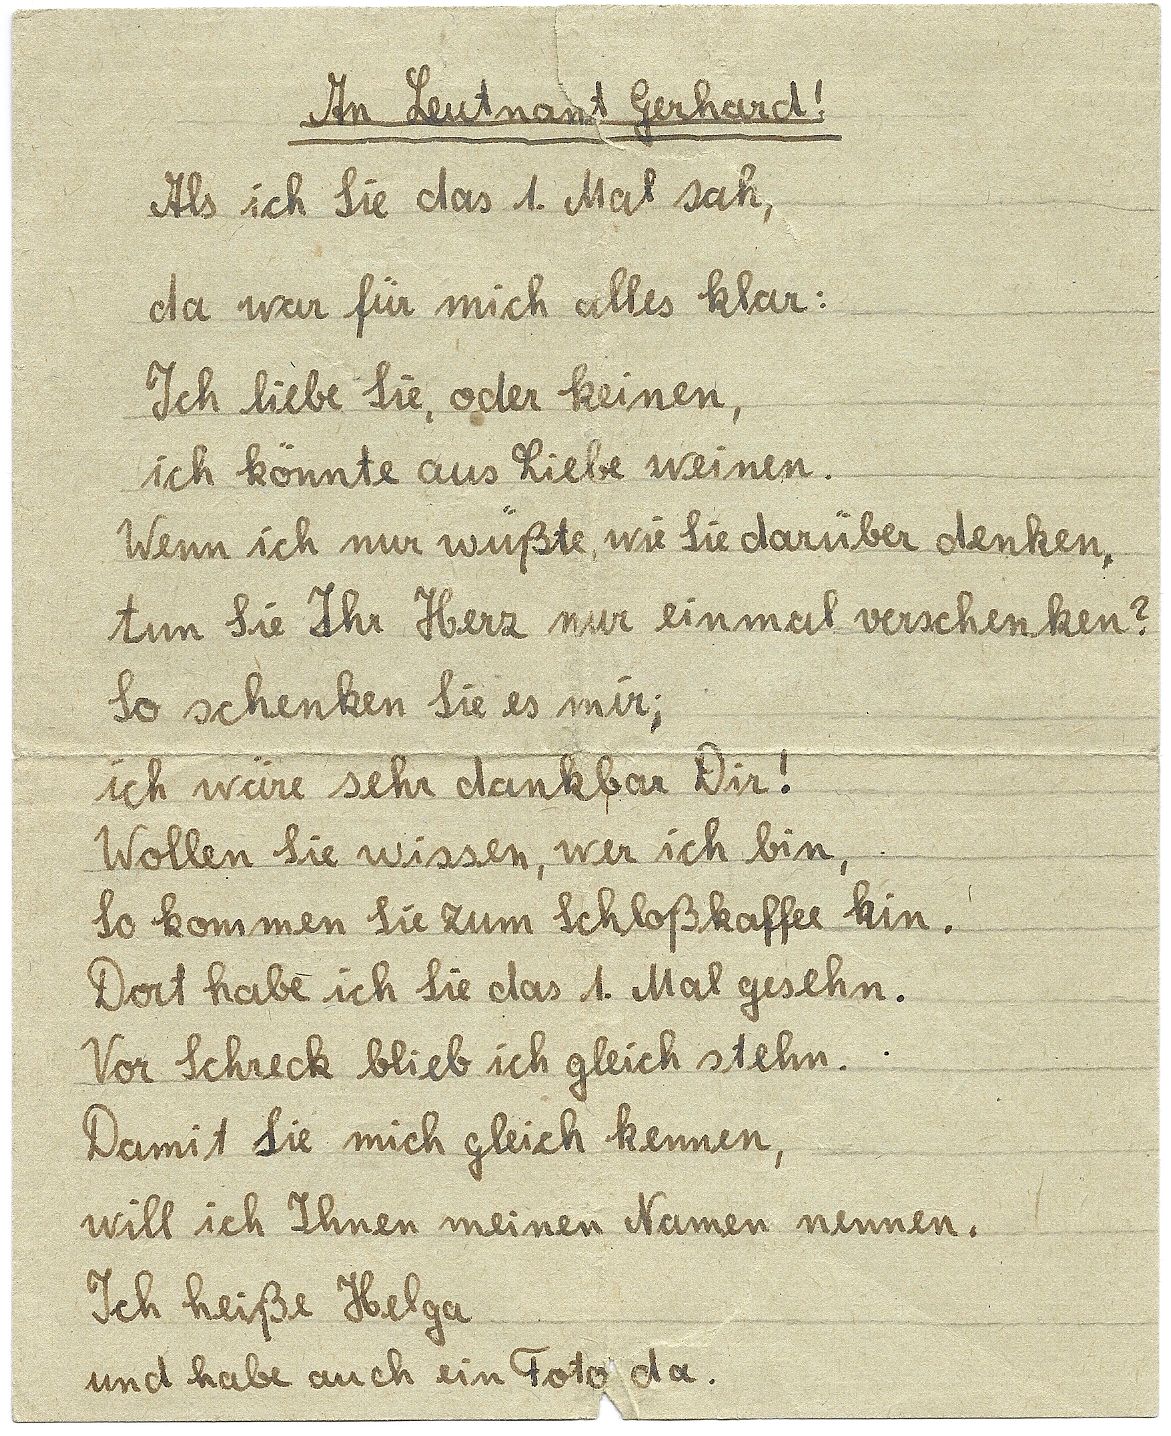 An Leutnant Gerhard!
Als ich Sie das 1. Mal sah,
da war für mich alles klar:
Ich liebe Sie, oder keinen,
ich könnte aus Liebe weinen.
Wenn ich nur wüßte, wie Sie darüber denken,
tun Sie Ihr Herz nur einmal verschenken?
So schenken Sie es mir;
ich wäre sehr dankbar Dir!
Wollen Sie wissen, wer ich bin,
So kommen Sie zum Schloßkaffee hin.
Dort habe ich Sie das 1. Mal gesehn.
Vor Schreck blieb ich gleich stehn.
Damit Sie mich gleich kennen,
will ich Ihnen meinen Namen nennen.
Ich heiße Helga
und habe auch ein Foto da.